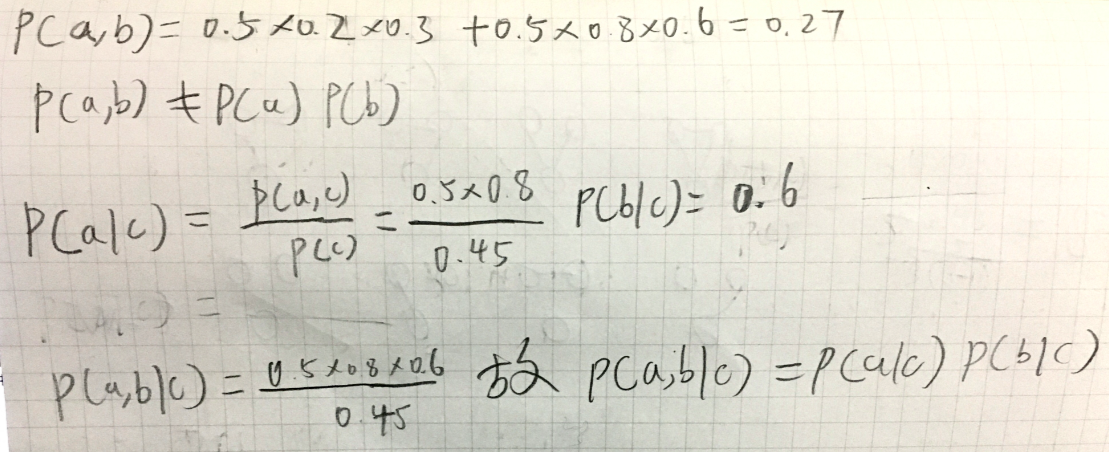 P(a,b) = 0.5×0.2×0.3 +0.5×0.8×0.6 = 0.27
P(a,b) ≠ P(a) P(b)
P(a|c) = P(a,c)/P(c) = 0.5×0.8/0.45 P(b|c) = 0.6
P(a,b|c) = 0.5×0.8×0.6/0.45 故 P(a,b|c) = P(a|c) P(b|c)